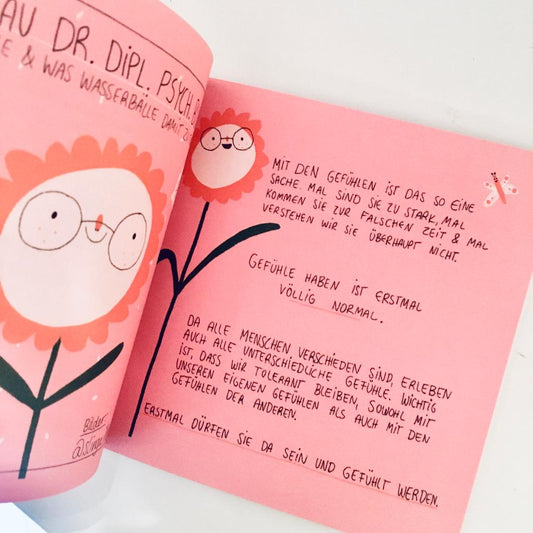 AU DR. DIPL. PSYCH.
& WAS WASSERBÄLLE DAMIT
Bilder:
MIT DEN GEFÜHLEN IST DAS SO EINE
SACHE. MAL SIND SIE ZU STARK, MAL
KOMMEN SIE ZUR FALSCHEN ZEIT & MAL
VERSTEHEN WIR SIE ÜBERHAUPT NICHT.
GEFÜHLE HABEN IST ERSTMAL
VÖLLIG NORMAL.
DA ALLE MENSCHEN VERSCHIEDEN SIND, ERLEBEN
AUCH ALLE UNTERSCHIEDLICHE GEFÜHLE. WICHTIG
IST, DASS WIR TOLERANT BLEIBEN, SOWOHL MIT
UNSEREN EIGENEN GEFÜHLEN ALS AUCH MIT DEN
GEFÜHLEN DER ANDEREN.
ERSTMAL DÜRFEN SIE DA SEIN UND GEFÜHLT WERDEN.